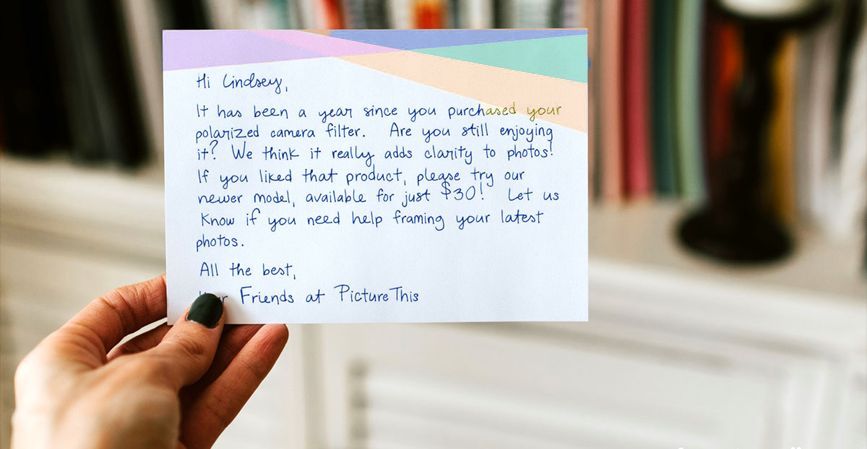 Hi Lindsey,
It has been a year since you purchased your
polarized camera filter. Are you still enjoying
it? We think it really adds clarity to photos!
If you liked that product, please try our
newer model, available for just $30! Let us
know if you need help framing your latest
photos.
All the best,
Friends at PictureThis